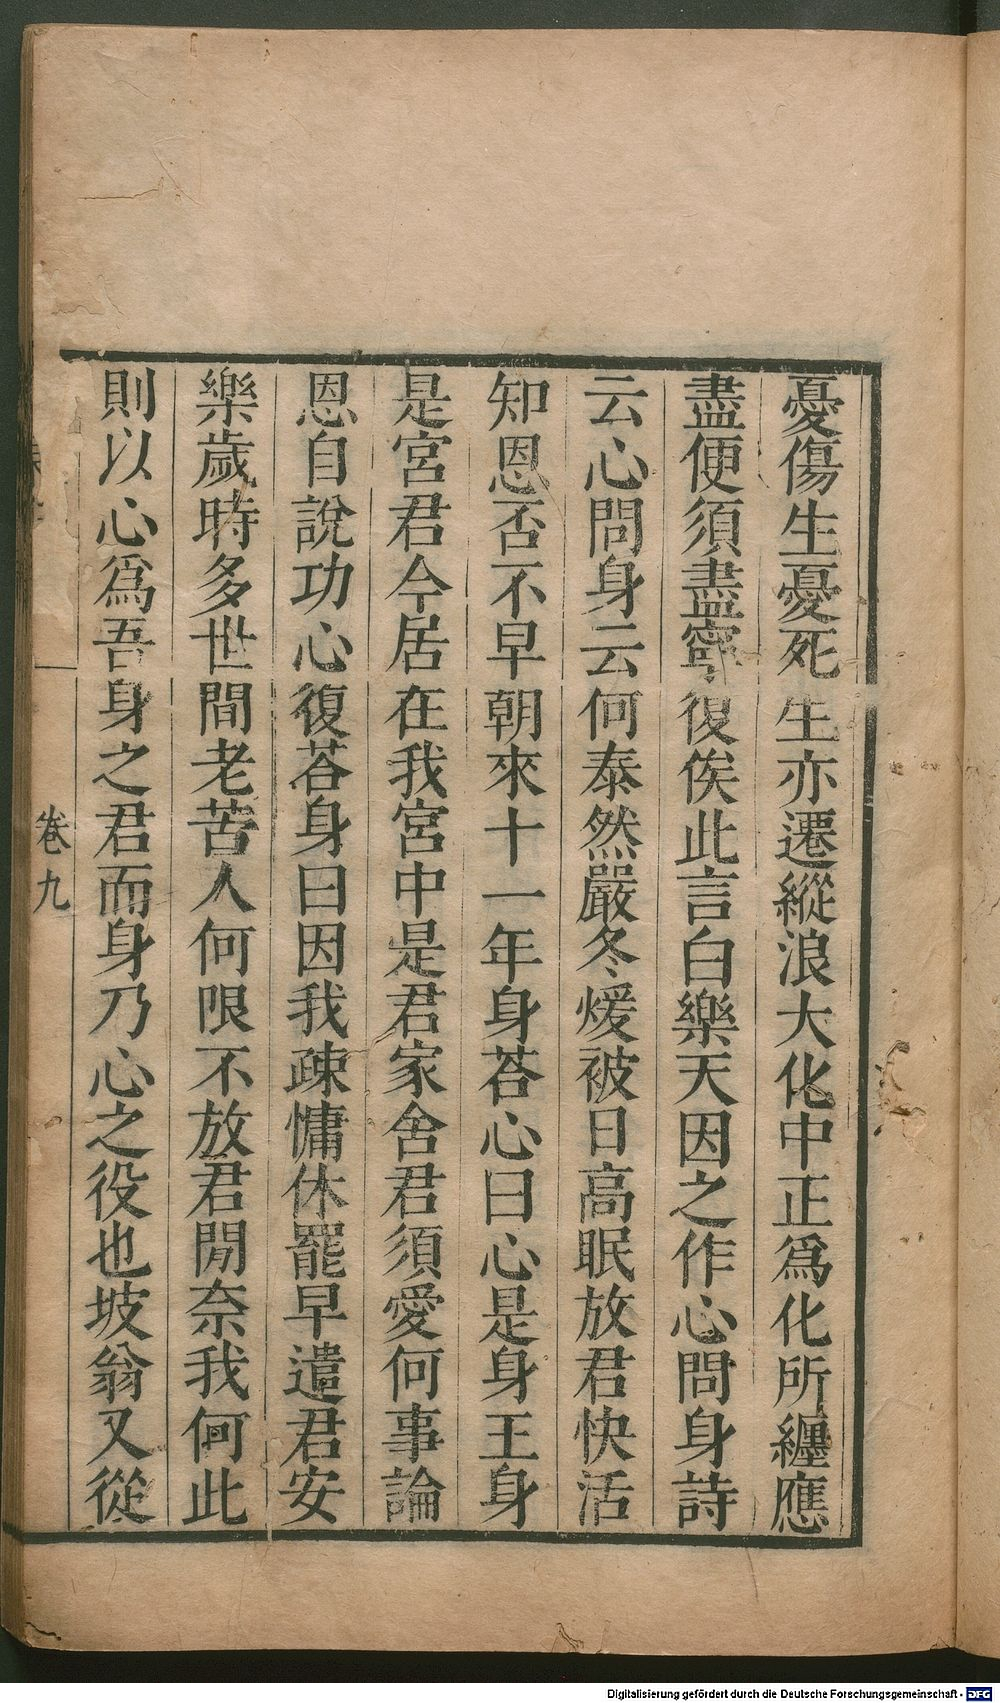 憂傷生憂死生亦遷縱浪大化中正爲化所纏應
盡便須盡寧復俟此言白樂天因之作心問身詩
云心問身云何泰然嚴冬煖被日高眠放君快活
知恩否不早朝來十一年身荅心曰心是身王身
是宮君今居在我宮中是君家舍君須愛何事論
恩自說功心復荅身曰因我疎慵休罷早遣君安
樂歲時多世間老苦人何限不放君閒奈我何此
則以心爲吾身之君而身乃心之役也坡翁又從
卷九
Digitalisierung gefördert durch die Deutsche Forschungsgemeinschaft - DFG